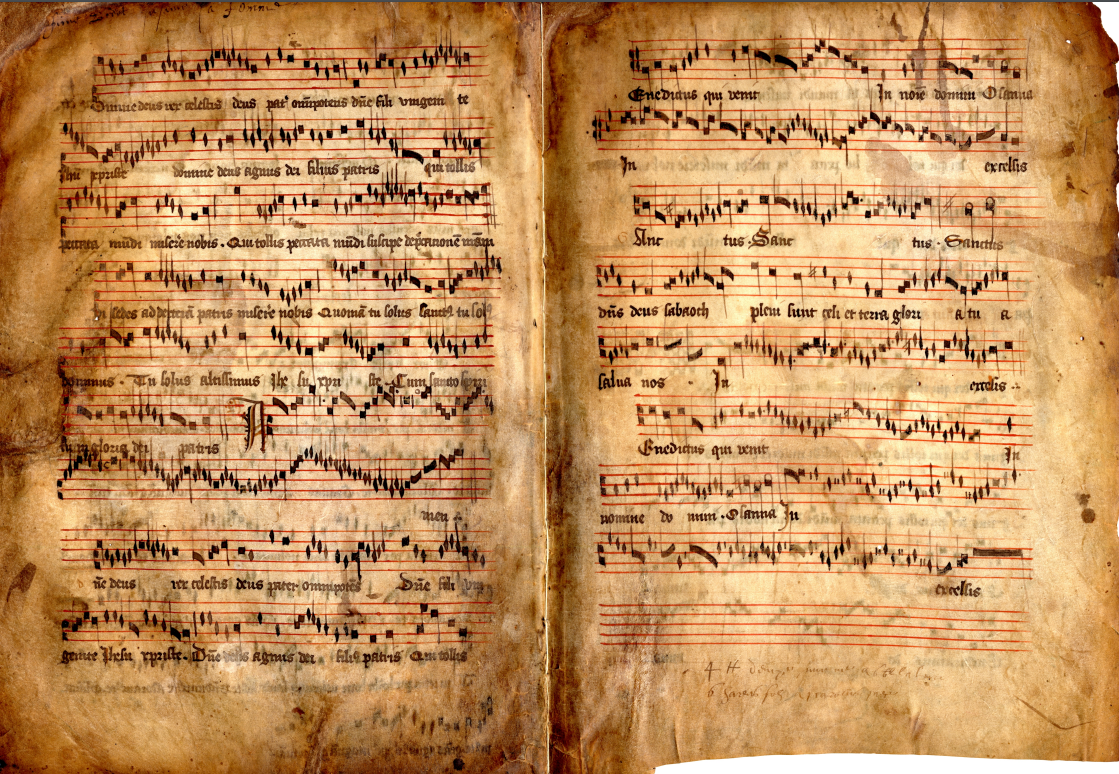 Domine deus rex celestis deus pat' om̄ipotens dn̄e fili vnigeni te
ihū xpriste domine deus agnus dei filius patris qui tollis
peccata mūdi miserē nobis · Qui tollis peccata mūdi suscipe
sedes ad patris miserē nobis Quoniā tu solus sanct9 tu sol9
dominus · Tu solus altissimus Ihū xpū ste Cum sancto spiri
gloria dei patris A
men
n̄e deus rex celestis deus pater omnipotēs Dn̄e fili vni
genite ihesu xpriste · Dn̄e deus agnus dei fili9 patris Qui tollis
Enedictus qui venit In noīe domini Osanna
In excelsis
Anc tus · Sanc tus · Sanctus
dn̄s deus sabaoth pleni sunt celi et terra glori a tu a
In excelsis
Enedictus qui venit In
nomine do mini · Osanna In
excelsis